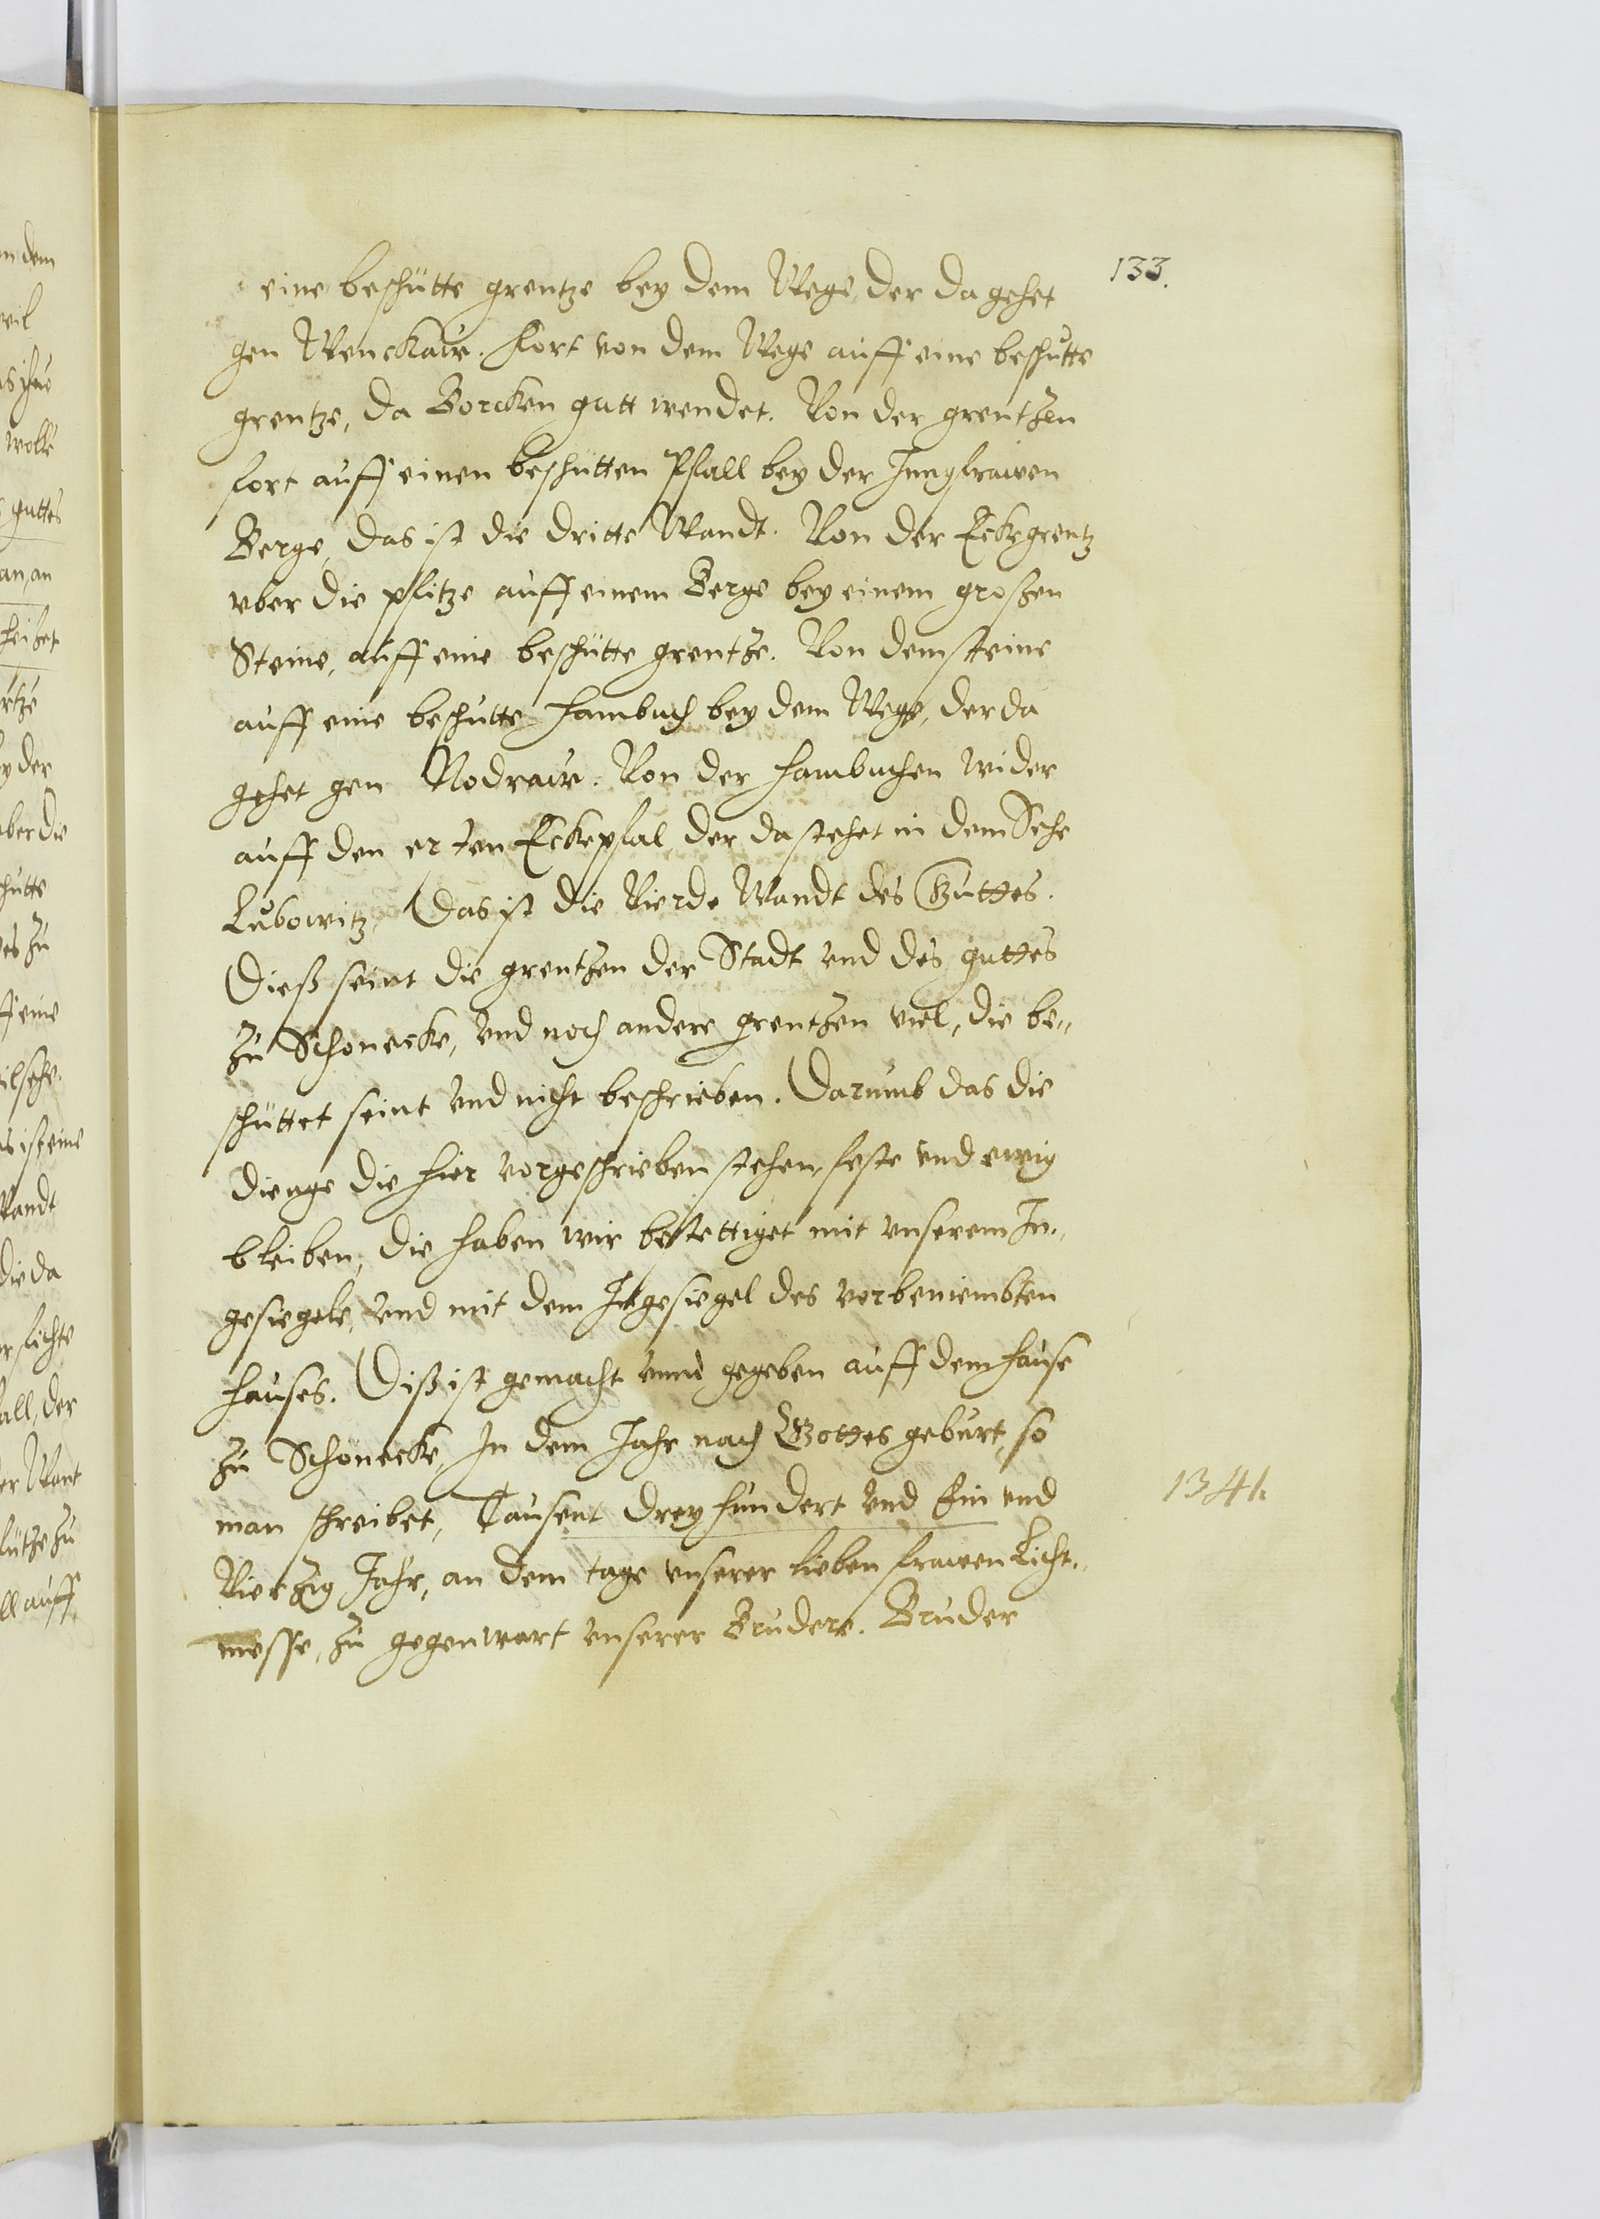 133.
eine beschütte grentze bey dem Wege, der da gehet
gen Wenckaw. Fort von dem Wege auff eine beschutte
grentze, da Borcken gutt wendet. Von der grentzen
fort auff einen beschütten Pfall bey der Jungfrawen
Berge, das ist die dritte Wandt. Von der Eckegrentz
vber die pflitze auff einem Berge bey einem großen
Steine, auff eine beschütte grentze. Von dem steine
auff eine beschutte hambuch bey dem Wege, der da
gehet gen Modraw. Von der hambuchen wider
auff den ersten Eckepfal, der da stehet in dem Sehe
Lubowitz, Das ist die Vierde Wandt des Guttes.
Dieß seint die grentzen der Stadt vnd des guttes
zu Schonecke, vnd noch andere grentzen viel, die be-
schüttet seint vnd nicht beschrieben. Darumb das die
dienge die hier vorgeschrieben stehen, feste vnd ewig
bleiben, die haben wir bestettiget mit vnserem In-
gesiegele, vnd mit dem Ingesiegel des vorbeniembten
hauses. Diß ist gemacht vnnd gegeben auff dem hause
zu Schönecke, In dem Jahr nach Gottes geburt, so
man schreibet, Tausent dreyhundert vnd Ein vnd
1341.
Vierzig Jahr, an dem tage vnserer lieben frawen Licht-
messe, zu gegenwart vnserer Brudere. Bruder